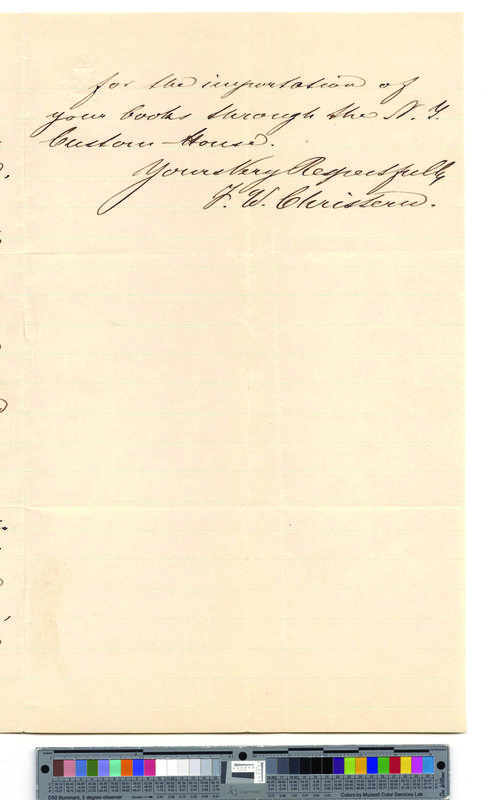 for the importation of
your books through the N. Y.
Custom-House.
Yours Very Respectfully
F. W. Christern.
D50 Illuminant, 2 degree observer
Colors by Munsell Color Services Lab